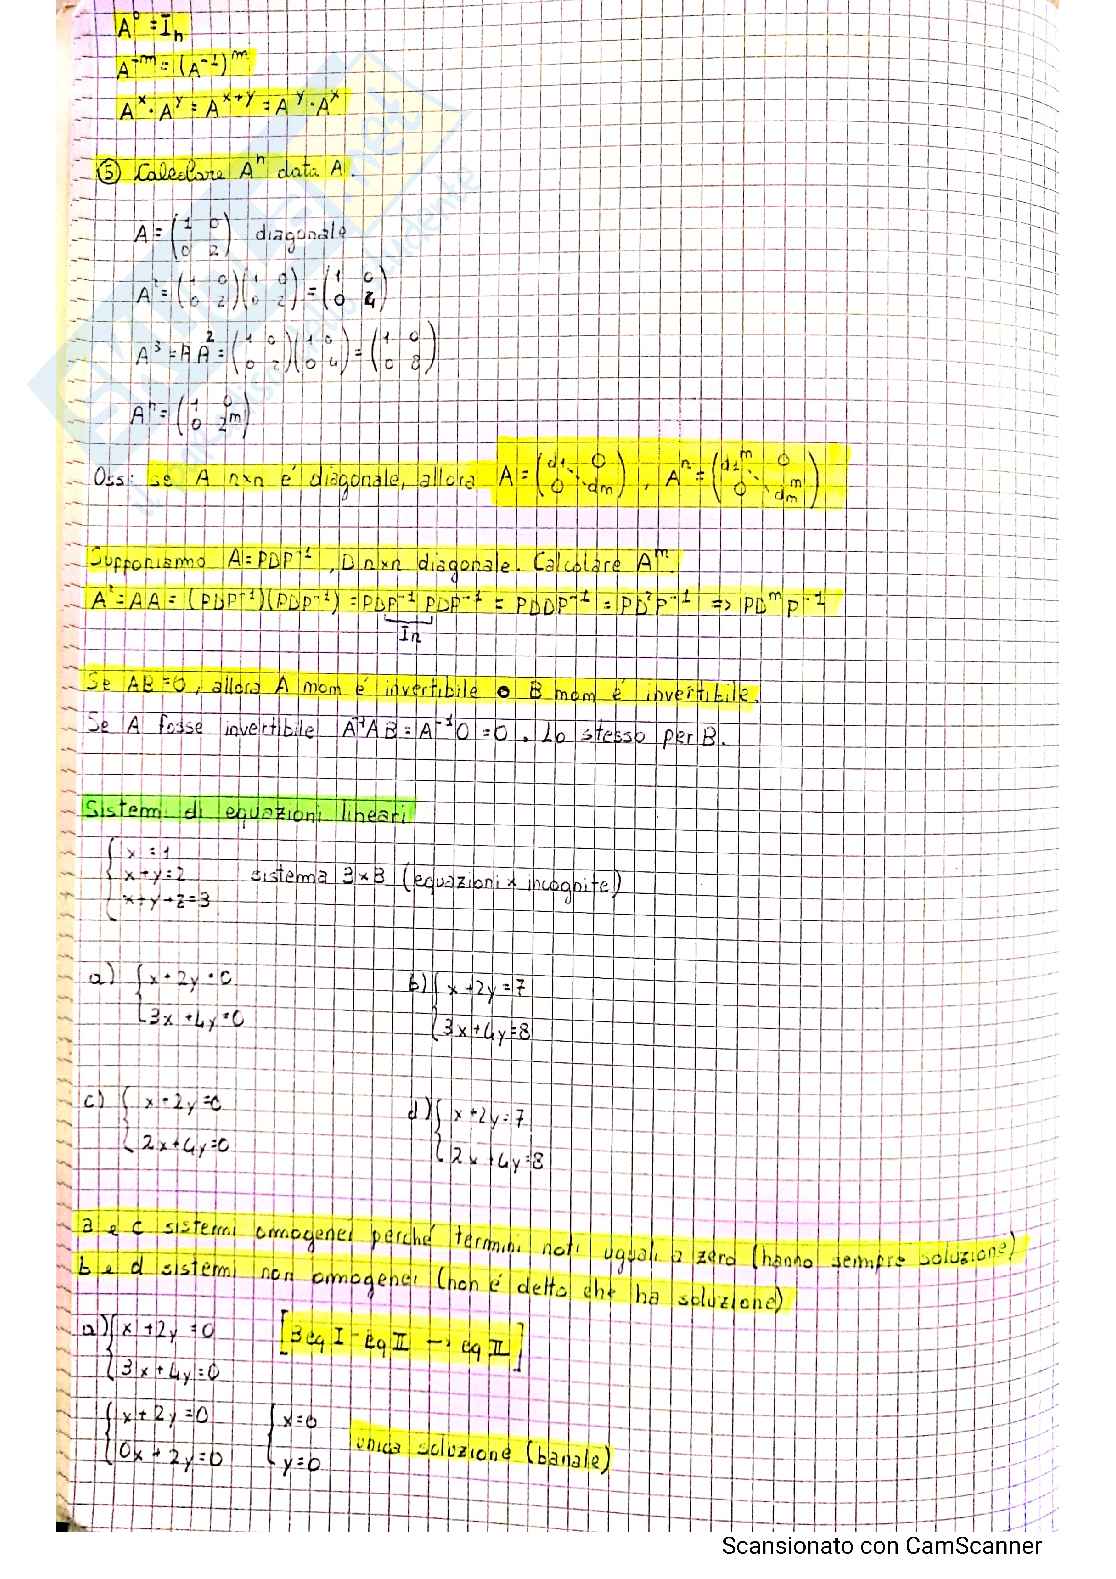 A⁰ = Iₙ
A⁻ᵐ = (A⁻¹)ᵐ
Aˣ · Aʸ = Aˣ⁺ʸ = Aʸ · Aˣ
⑤ Calcolare Aⁿ data A.
A = (1 0 / 0 2) diagonale
A² = (1 0 / 0 2)(1 0 / 0 2) = (1 0 / 0 4)
A³ = A A² = (1 0 / 0 2)(1 0 / 0 4) = (1 0 / 0 8)
Aⁿ = (1 0 / 0 2ᵐ)
Oss: se A n×n é diagonale, allora A = (d1 0 / 0 dm), Aⁿ = (d1ᵐ 0 / 0 dmᵐ)
Supponiamo A = PDP⁻¹, D n×n diagonale. Calcolare Aᵐ.
A² = AA = (PDP⁻¹)(PDP⁻¹) = PDP⁻¹PDP⁻¹ = PDDP⁻¹ = PD²P⁻¹ => PDᵐP⁻¹
In
Se AB = 0, allora A mom é invertibile o B mom é invertibile.
Se A fosse invertibile A⁻¹AB = A⁻¹0 = 0. Lo stesso per B.
Sistemi di equazioni lineari
{x = 1
x + y = 2 sistema 3×3 (equazioni × incognite)
x + y + z = 3
a) {x + 2y = 0 b) {x + 2y = 7
3x + 4y = 0 3x + 4y = 8
c) {x + 2y = 0 d) {x + 2y = 7
2x + 4y = 0 2x + 4y = 8
a e c sistemi omogenei perché termini noti uguali a zero (hanno sempre soluzione)
b e d sistemi non omogenei (non é detto che ha soluzione)
a) {x + 2y = 0 [3 eq I - eq II → eq II]
3x + 4y = 0
{x + 2y = 0 {x = 0
0x + 2y = 0 y = 0 unica soluzione (banale)
Scansionato con CamScanner